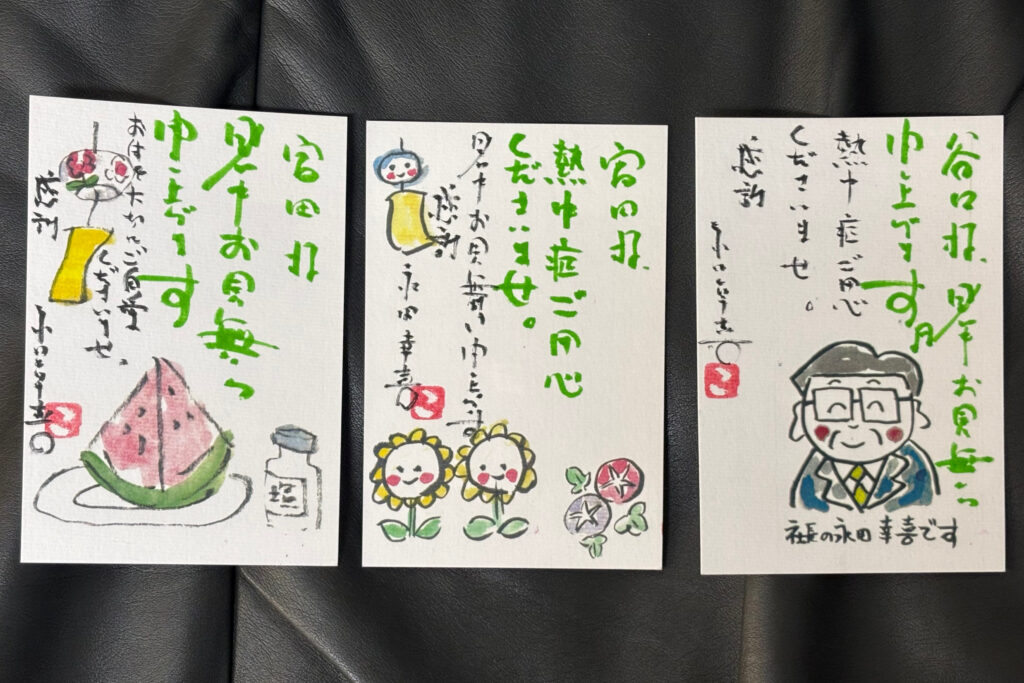 宮田様
暑中お見舞い
申し上げます
お体大切にご自愛
くださいませ。
感謝
塩
宮田様
熱中症ご用心
くださいませ。
暑中お見舞い申し上げます
感謝
永田幸喜
谷口様
暑中お見舞い
申し上げます
熱中症ご用心
くださいませ。
感謝
社長の永田幸喜です